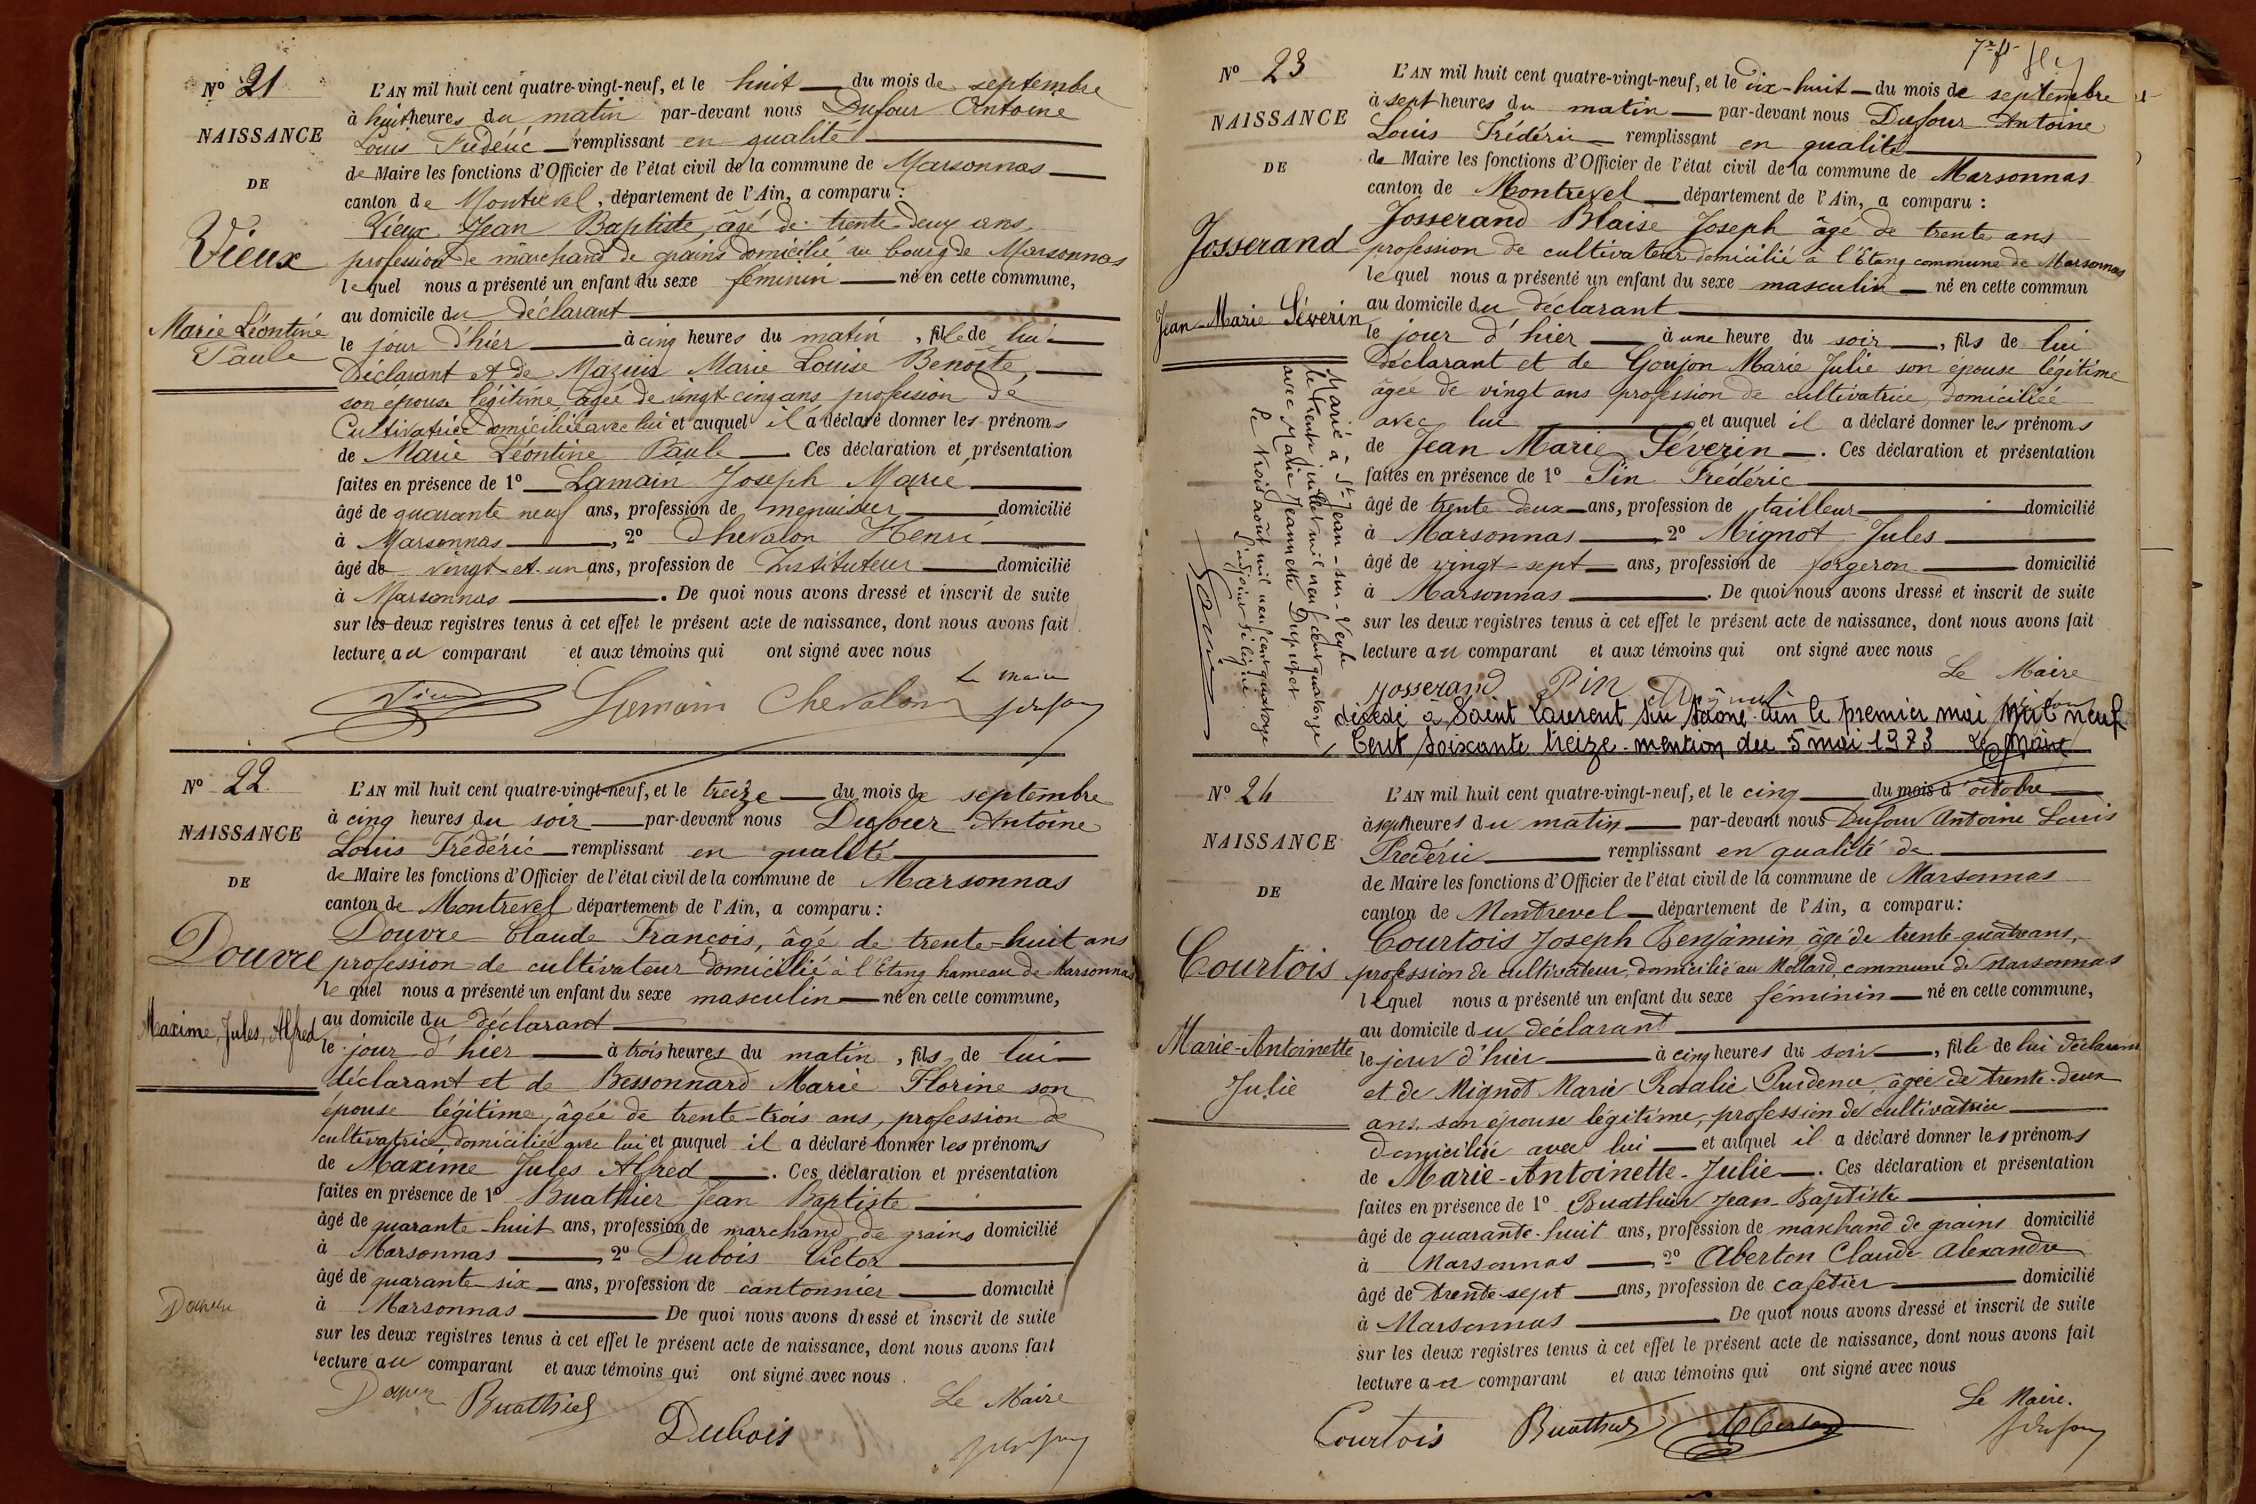 Nº 21
NAISSANCE
DE
Vieux
Marie Léontine
Paule
L'AN mil huit cent quatre-vingt-neuf, et le huit du mois de septembre
à huit heures du matin par-devant nous Dufour Antoine
Louis Frédéric remplissant en qualité
de Maire les fonctions d'Officier de l'état civil de la commune de Marsonnas
canton de Montrevel, département de l'Ain, a comparu :
Vieux Jean Baptiste, âgé de trente deux ans
profession de marchand de grains domicilié au bourg de Marsonnas
lequel nous a présenté un enfant du sexe féminin né en cette commune,
au domicile du déclarant
le jour d'hier à cinq heures du matin, fille de lui
Déclarant et de Marie Louise Benoîte,
son épouse légitime âgée de vingt-cinq ans profession de
Cultivatrice domiciliée avec lui et auquel il a déclaré donner les prénoms
de Marie Léontine Paule. Ces déclaration et présentation
faites en présence de 1º Lamain Joseph Marie
âgé de quarante neuf ans, profession de menuisier domicilié
à Marsonnas, 2º Chevalon Henri
âgé de vingt-et-un ans, profession de Instituteur domicilié
à Marsonnas. De quoi nous avons dressé et inscrit de suite
sur les deux registres tenus à cet effet le présent acte de naissance, dont nous avons fait
lecture au comparant et aux témoins qui ont signé avec nous
Le Maire
Vieux Chevalon
Nº 22
NAISSANCE
DE
Douvre
Maxime, Jules, Alfred
L'AN mil huit cent quatre-vingt-neuf, et le treize du mois de septembre
à cinq heures du soir par-devant nous Dufour Antoine
Louis Frédéric remplissant en qualité
de Maire les fonctions d'Officier de l'état civil de la commune de Marsonnas
canton de Montrevel département de l'Ain, a comparu :
Douvre Claude François, âgé de trente-huit ans
profession de cultivateur domicilié à l'Etang hameau de Marsonnas
lequel nous a présenté un enfant du sexe masculin né en cette commune,
au domicile du déclarant
le jour d'hier à trois heures du matin, fils de lui
déclarant et de Bessonnard Marie Florine son
épouse légitime, âgée de trente-trois ans, profession de
cultivatrice domiciliée avec lui et auquel il a déclaré donner les prénoms
de Maxime Jules Alfred. Ces déclaration et présentation
faites en présence de 1º Buathier Jean Baptiste
âgé de quarante-huit ans, profession de marchand de grains domicilié
à Marsonnas 2º Dubois Victor
âgé de quarante-six ans, profession de cantonnier domicilié
à Marsonnas De quoi nous avons dressé et inscrit de suite
sur les deux registres tenus à cet effet le présent acte de naissance, dont nous avons fait
lecture au comparant et aux témoins qui ont signé avec nous
Le Maire
Buathier
Dubois
Nº 23
NAISSANCE
DE
Josserand
Jean-Marie Séverin
L'AN mil huit cent quatre-vingt-neuf, et le Dix-huit du mois de septembre
à sept heures du matin par-devant nous Dufour Antoine
Louis Frédéric remplissant en qualité
de Maire les fonctions d'Officier de l'état civil de la commune de Marsonnas
canton de Montrevel département de l'Ain, a comparu :
Josserand Blaise Joseph âgé de trente ans
profession de cultivateur domicilié à l'Etang commune de Marsonnas
lequel nous a présenté un enfant du sexe masculin né en cette commun
au domicile du déclarant
le jour d'hier à une heure du soir, fils de lui
Déclarant et de Goujon Marie Julie son épouse légitime
âgée de vingt ans profession de cultivatrice, domiciliée
avec lui et auquel il a déclaré donner les prénoms
de Jean Marie Séverin. Ces déclaration et présentation
faites en présence de 1º Pin Frédéric
âgé de trente deux ans, profession de tailleur domicilié
à Marsonnas 2º Mignot Jules
âgé de vingt-sept ans, profession de forgeron domicilié
à Marsonnas. De quoi nous avons dressé et inscrit de suite
sur les deux registres tenus à cet effet le présent acte de naissance, dont nous avons fait
lecture au comparant et aux témoins qui ont signé avec nous
Le Maire
Josserand Pin
Marié à St-Jean-sur-Veyle
le trente juillet mil neuf cent quatorze
avec Marie Jeannette
Le trois août mil neuf cent quatorze
décédé à Saint Laurent sur Saône Ain le premier mai mil neuf
Cent soixante treize - mention du 5 mai 1973 Le Maire
Nº 24
NAISSANCE
DE
Courtois
Marie-Antoinette
Julie
L'AN mil huit cent quatre-vingt-neuf, et le cinq du mois d'octobre
à sept heures du matin par-devant nous Dufour Antoine Louis
Frédéric remplissant en qualité de
de Maire les fonctions d'Officier de l'état civil de la commune de Marsonnas
canton de Montrevel département de l'Ain, a comparu :
Courtois Joseph Benjamin âgé de trente-quatre ans,
profession de cultivateur, domicilié au Mollard, commune de Marsonnas
lequel nous a présenté un enfant du sexe féminin né en cette commune,
au domicile du déclarant
le jour d'hier à cinq heures du soir, fille de lui déclarant
et de Mignot Marie Rosalie Prudence âgée de trente-deux
ans, son épouse légitime, profession de cultivatrice
domiciliée avec lui et auquel il a déclaré donner les prénoms
de Marie-Antoinette-Julie. Ces déclaration et présentation
faites en présence de 1º Buathier Jean-Baptiste
âgé de quarante-huit ans, profession de marchand de grains domicilié
à Marsonnas 2º Aberton Claude Alexandre
âgé de trente-sept ans, profession de cafetier domicilié
à Marsonnas De quoi nous avons dressé et inscrit de suite
sur les deux registres tenus à cet effet le présent acte de naissance, dont nous avons fait
lecture au comparant et aux témoins qui ont signé avec nous
Le Maire.
Courtois Buathier